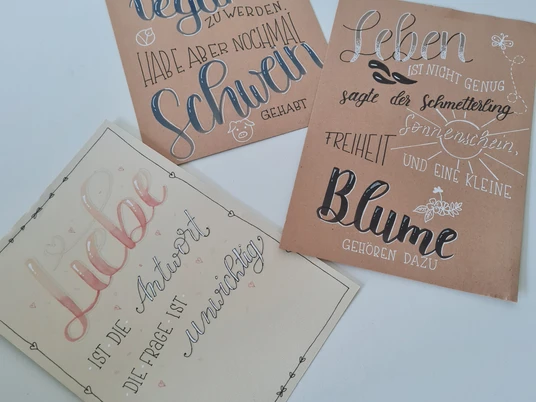 vegan
ZU WERDEN,
HABE ABER NOCHMAL
Schwein
GEHABT
Leben
IST NICHT GENUG
sagte der Schmetterling
Sonnenschein,
FREIHEIT
UND EINE KLEINE
Blume
GEHÖREN DAZU
Liebe
IST DIE Antwort
DIE FRAGE IST
unwichtig